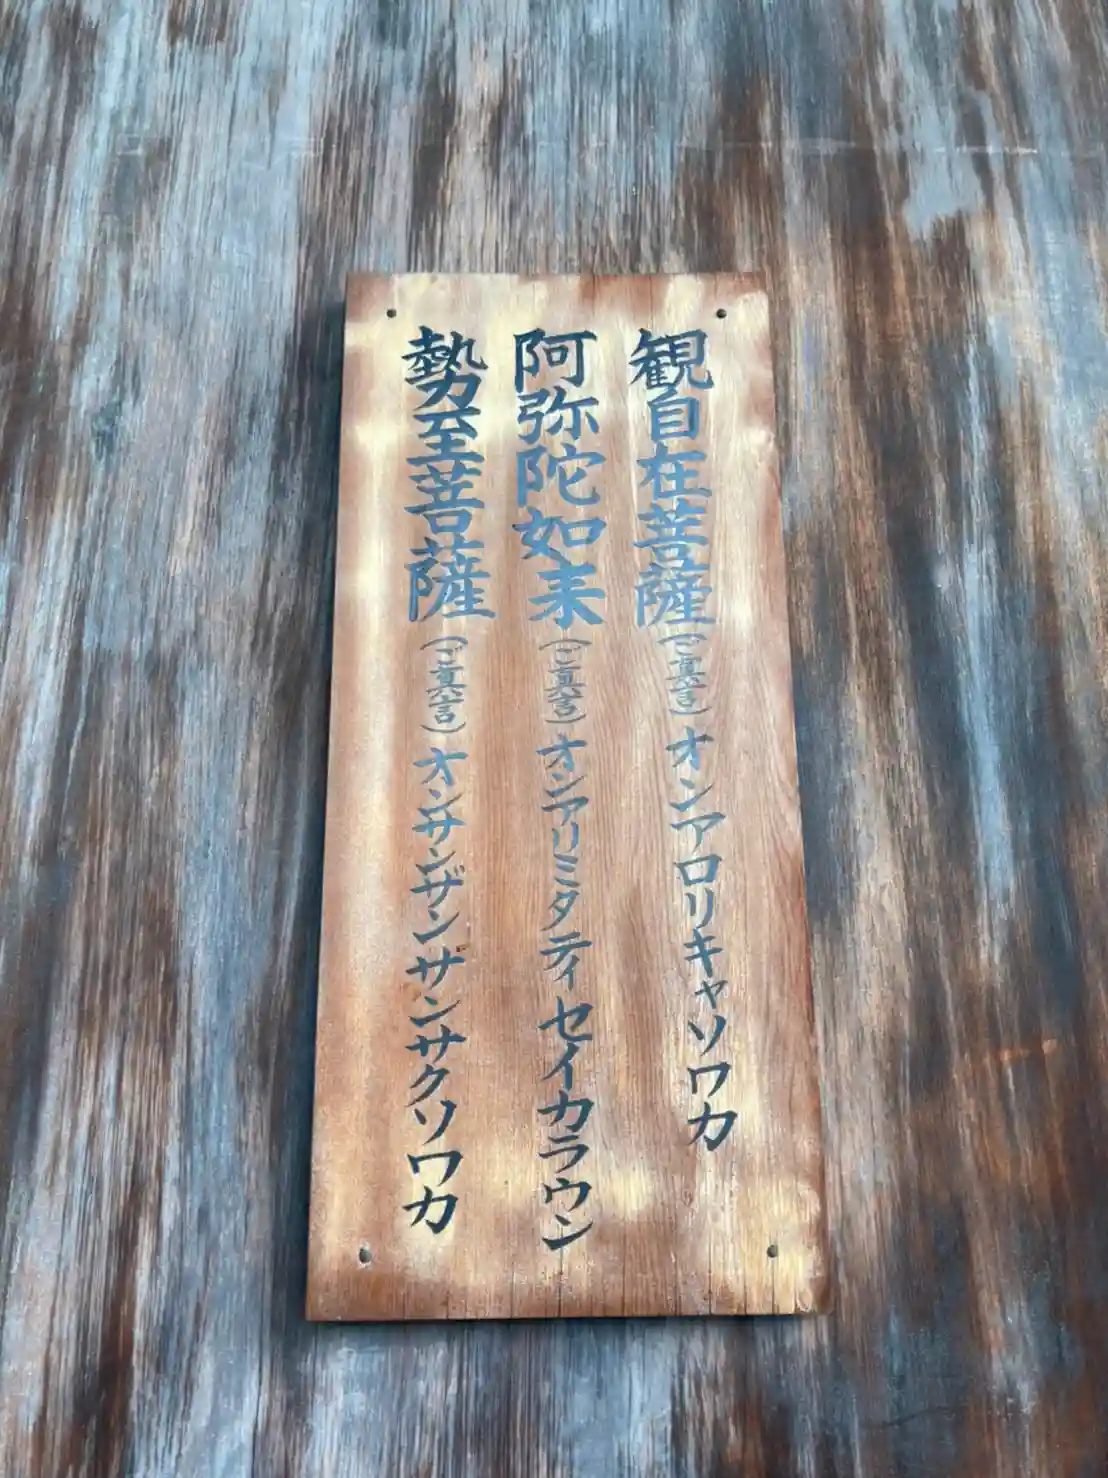 観自在菩薩(ご真言)オンアロリキャソワカ
阿弥陀如来(ご真言)オンアリミタティセイカラウン
勢至菩薩(ご真言)オンサンザンザンサクソワカ